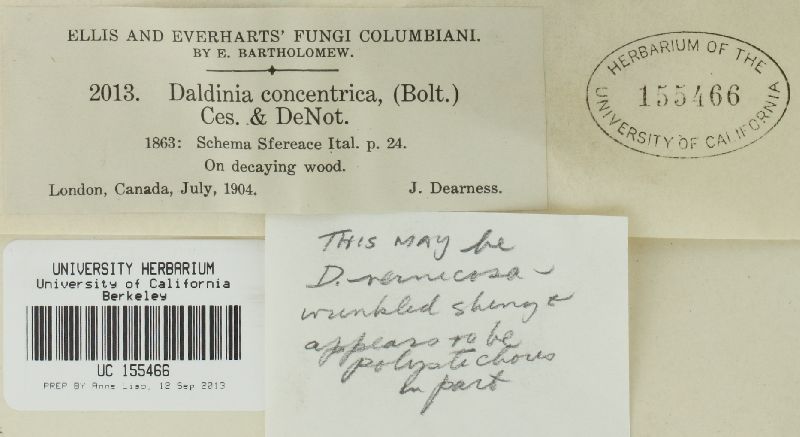 ELLIS AND EVERHARTS' FUNGI COLUMBIANI.
BY E. BARTHOLOMEW.
2013. Daldinia concentrica, (Bolt.)
Ces. & DeNot.
1863: Schema Sfereace Ital. p. 24.
On decaying wood.
London, Canada, July, 1904. J. Dearness.
HERBARIUM OF THE
155466
UNIVERSITY OF CALIFORNIA
UNIVERSITY HERBARIUM
University of California
Berkeley
UC 155466
PREP BY Anne Liao, 12 Sep 2013
THIS MAY be
D. vernicosa -
wrinkled shiny &
appears to be
polystichous
in part